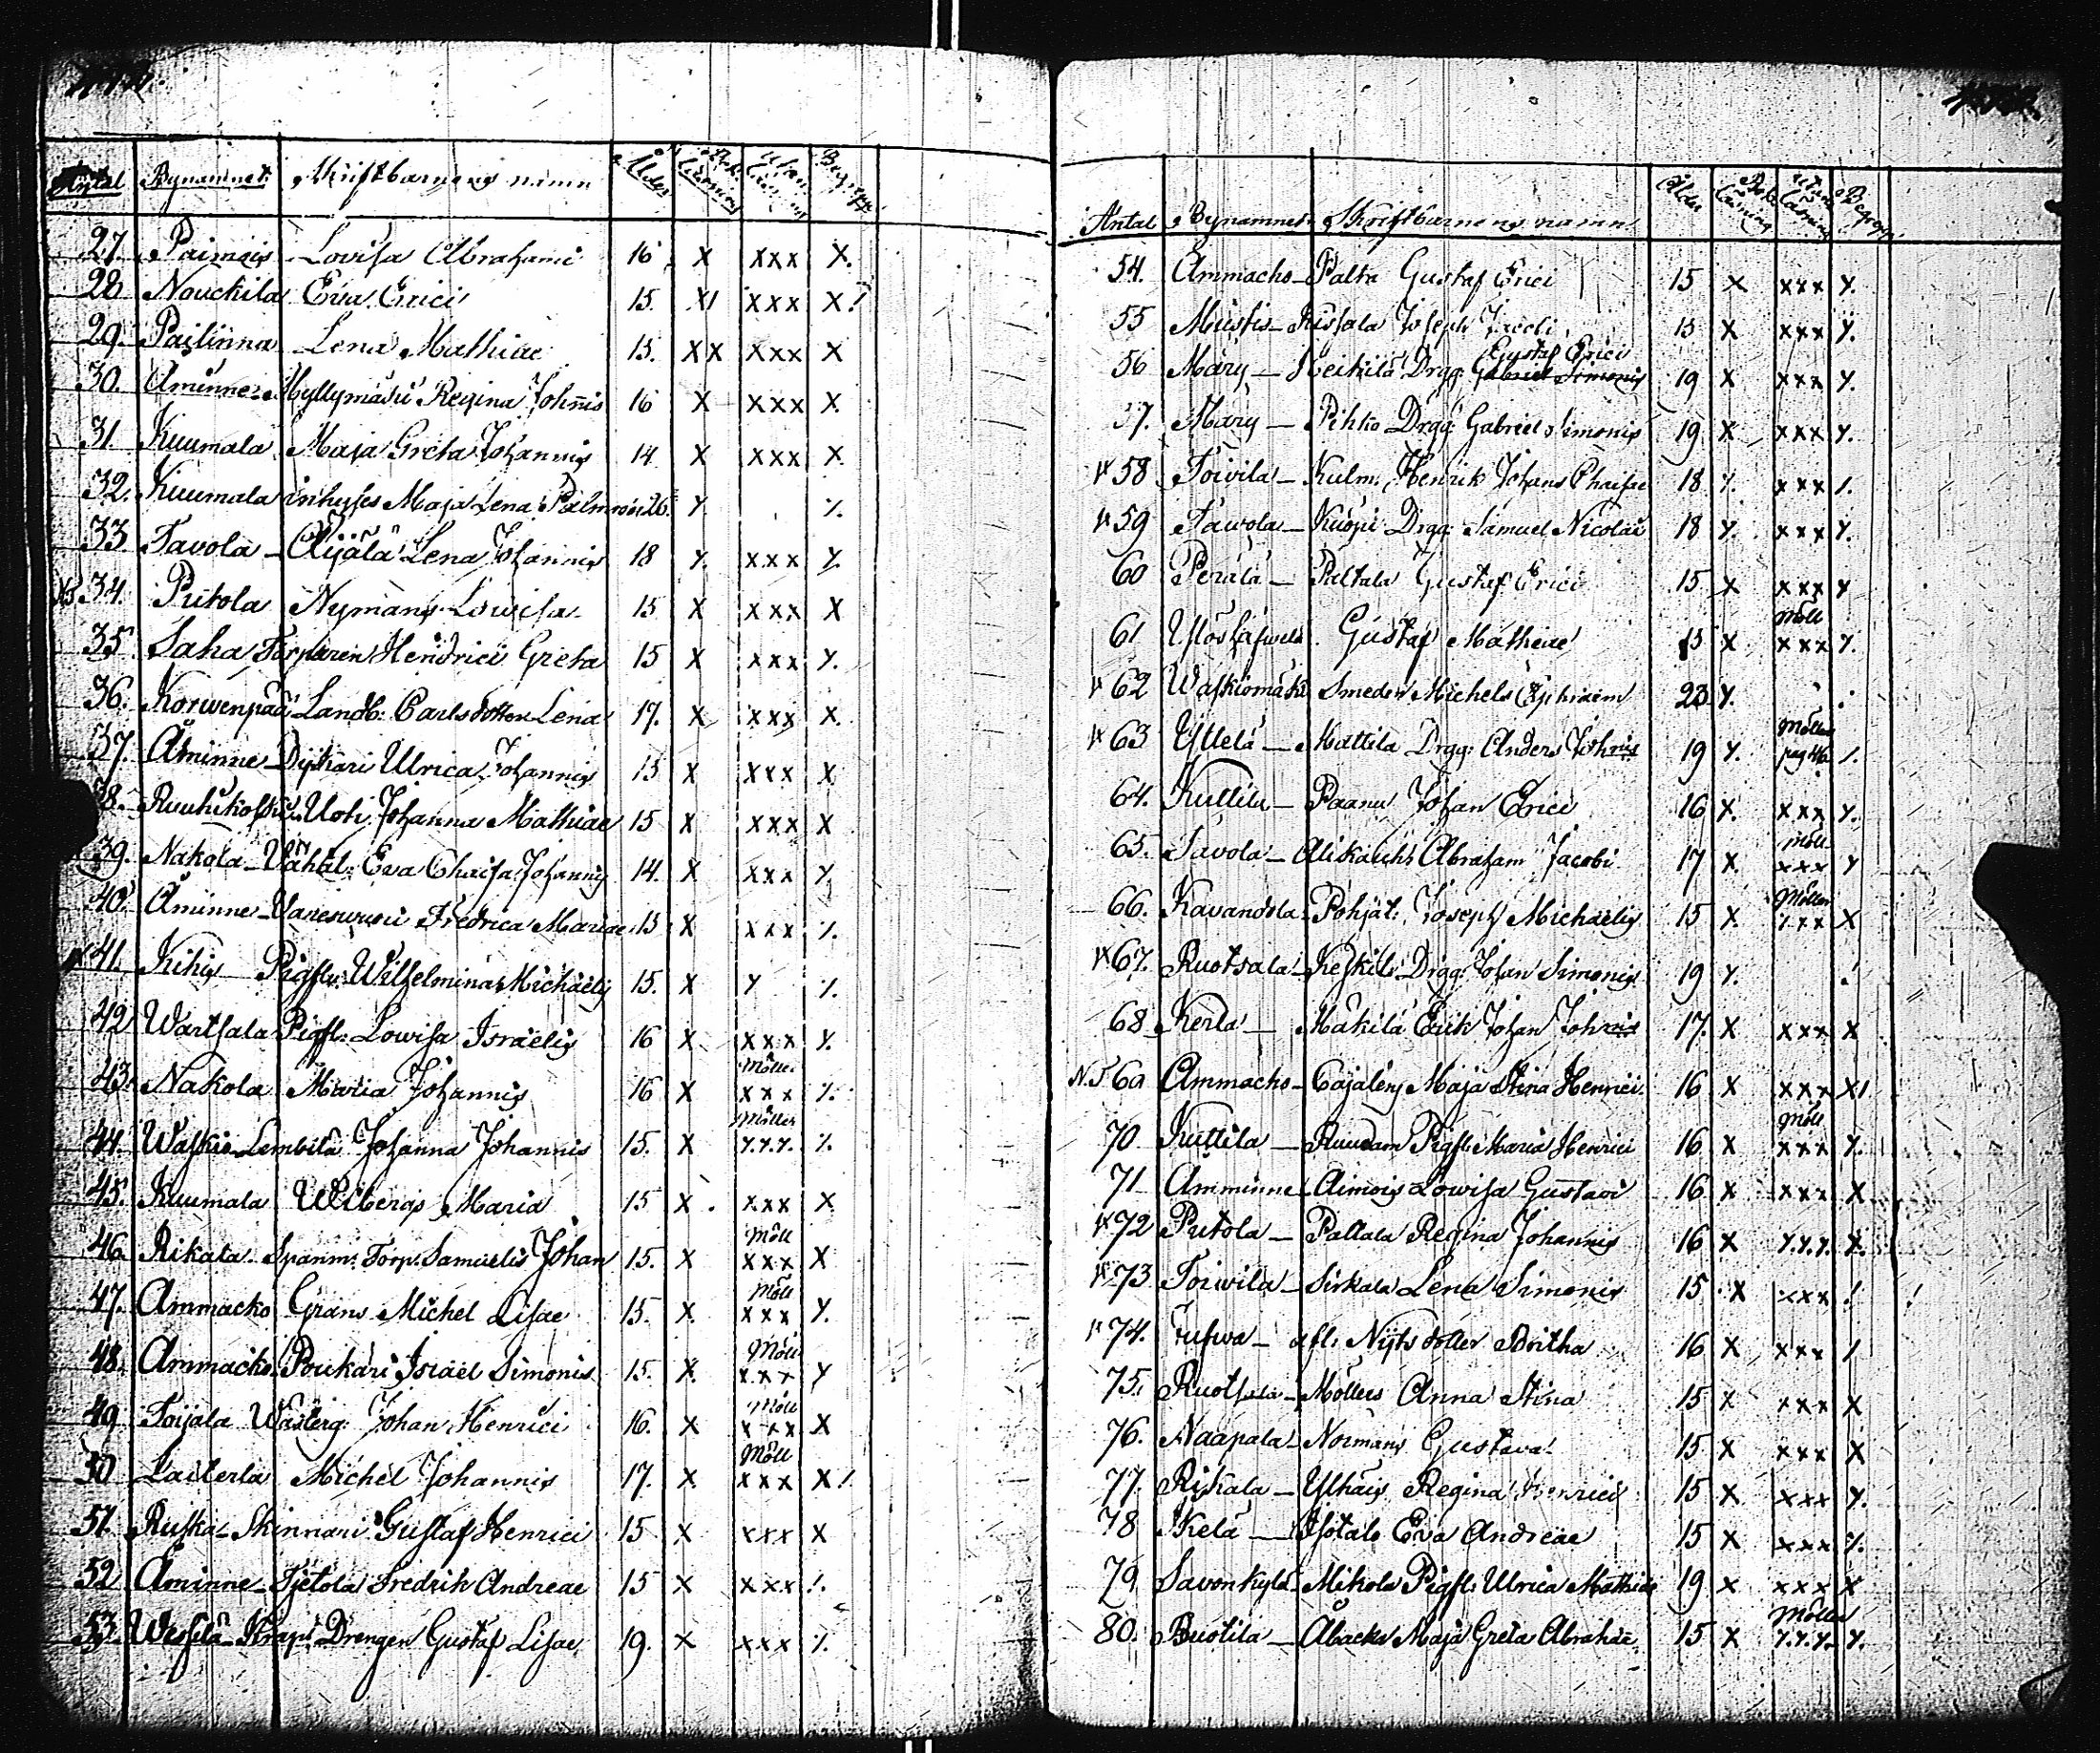 Antal Bynamnet Skriftbarnens namn Ålder Bok Läsning Utan Läsning Begrepp
27. Paimais Lovisa Abrahami 16 X XXX X.
28 Nouckila Eva Erici 15. XI XXX X!
29. Pailinna Lena Mathiae 15. XX XXX X
30. Åminne Myllymäki Regina Johnis 16 X XXX X
31. Kuumala Maja Greta Johannis 14 X XXX X.
32. Kuumala inhyses Maja Lena Palmroos 26. Y. Y.
33 Tavola - Äijälä Lena Johannis 18 Y. XXX Y.
34. Pritola Nymans Lovisa 15 X XXX X
35 Saha Torparen Hendrici Greta 15 X XXX Y.
36. Korwenpää Landb: Carlsdotter Lena 17. X XXX X.
37. Åminne - Dijkari Ulrica Johannis 15 X XXX X
38. Ruuhikoski Uoti Johanna Mathiae 15 X XXX X
39. Nakola - Vähät: Eva Chaisa Johannis 14. X XXX Y
40. Åminne - Fredrica Mariae 15 X XXX Y.
41. Kihis Pigfl: Wilhelmina Michaelis 15. X Y Y.
42 Wartsala Pigfl: Lowisa Israelis 16 X XXX Y.
43. Nakola Maria Johannis 16 X Möller XXX Y.
44. Waskio Lembilä Johanna Johannis 15. X Möller Y.Y.Y. Y.
45. Kuumala Ulbergs Maria 15 X. XXX X
46. Rikala Spanm: Torp: Samuelis Johan 15. X Möll XXX X
47. Ammacko Grans Michel Lisae 15. X. Möll XXX Y.
48. Ammacko Poukari Israel Simonis 15. X. Möll XXX Y
49. Toijala Wasberg: Johan Henrici 16. X Möll XXX X
50 Laiterla Michel Johannis 17. X. Möll XXX X!
51. Ruska - Skinnari Gustaf Henrici 15 X XXX X
52 Åminne - Tjetola Fredrik Andreae 15 X XXX !.
53. Wessilä - Kraps Drengen Gustaf Lisae 19. X XXX Y.
Antal Bynamnet Skriftbarnens namn Ålder Bok Läsning Utan Läsning Begrepp
54. Ammacko - Palta Gustaf Erici 15 X XXX Y.
55 Muistis - Rissala Joseph Jacobi 15 X XXX Y.
56 Märy - Heikilä Drgg: Gabriel Simonis Gustaf Erici 19 X XXX Y.
57. Märy - Pihko Drgg: Gabriel Simonis 19 X XXX Y.
58 Toivila - Kulm: Henrik Johans Chaisae 18 Y. XXX !.
59 Tavola - Kuopi Drgg: Samuel Nicolai 18 Y. XXX Y.
60 Perälä - Paltala Gustaf Erici 15 X XXX Y
61 Gustaf Mathiae 15 X Möll XXX Y.
62 Waskiomäki Smeden Michels Ephraim 23 Y.
63 Yttelä - Mattila Drgg: Anders Johnis 19 Y. Möller !.
64. Kuttila - Paanu Johan Erici 16 X. XXX Y.
65. Tavola - Alikauhs Abraham Jacobi 17 X. Möll XXX Y
66. Kavandola - Pohjat: Joseph Michaelis 15 X Möller XXX X
67. Ruotsala - Keskit: Drgg: Johan Simonis 19 Y. !
68 Kerla - Mäkilä Erik Johan Johnis 17. X XXX X
N.J 69 Ammacko - Cajaléns Maja Stina Henrici 16 X XXX XI
70 Kuttila - Pigfl: Maria Henrici 16 X Möll XXX Y.
71 Åmminne - Aimois Lowisa Gustavi 16 X XXX X.
72 Pritola - Paltala Regina Johannis 16 X Y.Y.Y. X.
73. Toiwila - Sirkala Lena Simonis 15 X XXX !
74. afl: Nijts dotter Britha 16 X XXX !
75. Ruotsala - Möllers Anna Stina 15 X XXX X
76. Naapala - Normans Gustava 15 X XXX X
77. Rikala - Ylhäis Regina Henrici 15 X XXX Y.
78 Ikelä - Isotalo Eva Andreae 15 X XXX Y.
79 Savonkylä - Mikola Pigfl: Ulrica Mathiae 19 X XXX X
80. Ruotila - Åbacka Maja Greta Abrahae 15 X Möller Y.Y.Y. Y.